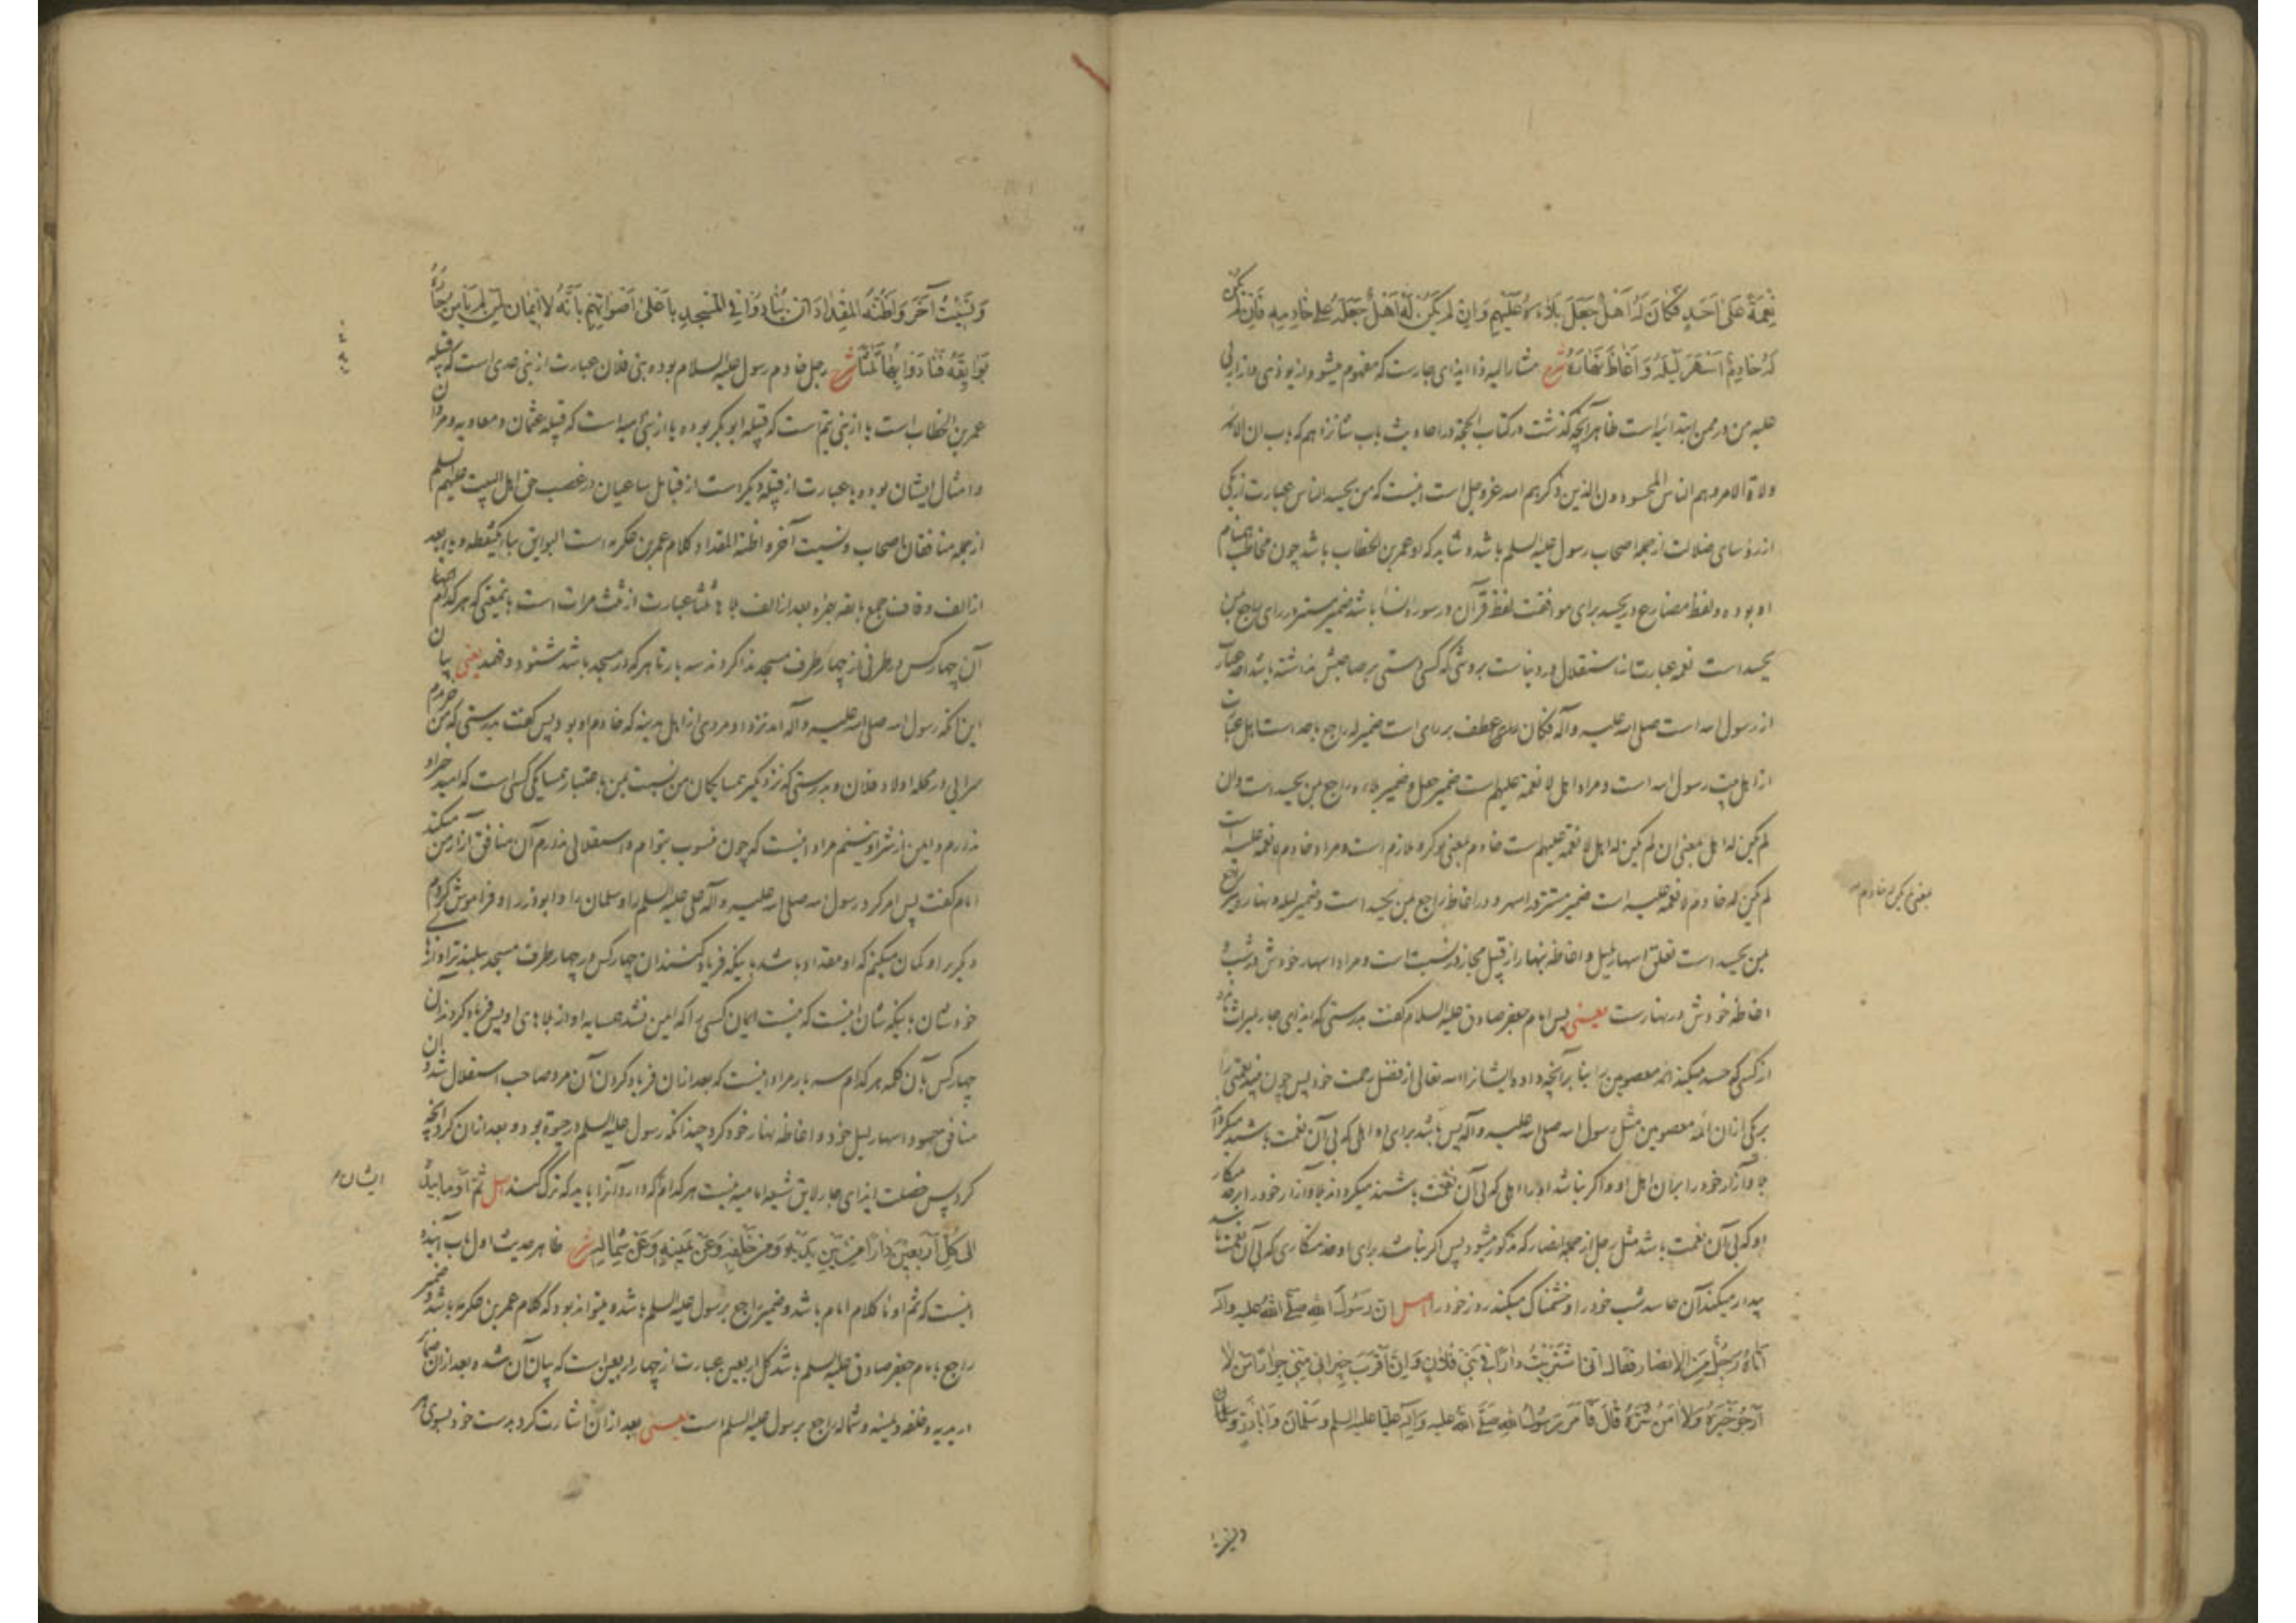 نِعْمَةً عَلىٰ اَحَدٍ فَكَانَ لَهُ اَهْلٌ جَعَلَ بَلَاءَهُ عَلَيْهِمْ وَاِنْ لَمْ يَكُنْ لَهُ اَهْلٌ جَعَلَهُ عَلىٰ خَادِمِهِ فَاِنْ لَمْ يَكُنْ
لَهُ خَادِمٌ اَسْهَرَ لَيْلَهُ وَاَغَاظَ نَهَارَهُ شرح مشار الیه ذا ایذای جارست که مفهوم میشود از یوذی
علیه من در ممن ابتدائیه است ظاهر آنچه گذشت در کتاب الحجة در احادیث باب شانزدهم که باب ان الائمة
ولاة الامر وهم الناس المحسودون الذین ذکرهم الله عزوجل است اینست که من یحسد الناس عبارت از یکی
از رؤسای ضلالت از جمله اصحاب رسول علیه السلم باشد و شاید که او عمر بن الخطاب باشد چون مخاطب امام
او بوده و لفظ مضارع در یحسد برای موافقت لفظ قرآن در سوره النسا باشد ضمیر مستتر در رای راجع بمن
یحسد است نعمة عبارت از استقلال در دنیاست بروشی که کسی دستی بر صاحبش نداشته باشد احد عبارت
از رسول الله است صلی الله علیه وآله فکان برای عطف بر رای است ضمیر له راجع باحد است اهل عبارت
از اهل بیت رسول الله است و مراد اهل لا نعمة علیهم است ضمیر جعل و ضمیر بلاءه راجع بمن یحسد است وان
لم یکن له اهل بمعنی ان لم یکن له اهل لا نعمة علیهم است خادم بمعنی نوکر و ملازم است و مراد خادم لا نعمة علیه است
لم یکن له خادم لا نعمة علیه است ضمیر مستتر در اسهر و در اغاظ راجع بمن یحسد است و ضمیر لیله و نهاره نیز راجع
بمن یحسد است تعلق اسهار بلیل و اغاظه بنهار از قبیل مجاز در نسبت است و مراد اسهار خودش در شب و
اغاظه خودش در نهار است یعنی پس امام جعفر صادق علیه السلام گفت بدرستی که ایذای جار میراث
از کسی که حسد میکند ائمه معصومین را بنا بر آنچه داده ایشانرا الله تعالی از فضل رحمت خود پس چون میدید نعمتی را
بر یکی از ان ائمه معصومین مثل رسول الله صلی الله علیه وآله پس باشد برای او اهلی که بی آن نعمت باشند میگرداند
بلا و آزار خود را بر ان اهل او و اگر نباشد او را اهلی که بی آن نعمت باشند میگرداند بلا و آزار خود را بر خدمتکار
او که بی آن نعمت باشد مثل رجل از جمله انصار که مذکور میشود پس اگر نباشد برای او خدمتکاری که بی آن نعمت باشد
بیدار میکند آن حاسد شب خود را و خشمناک میکند روز خود را اصل اِنَّ رَسُولَ اللهِ صَلَّى اللهُ عليه وآله
اَتَاهُ رَجُلٌ مِنَ الاَنصَارِ فَقَالَ اِنِّي اشْتَرَيْتُ دَارًا فِي بَنِي فُلَانٍ وَاِنَّ اَقْرَبَ جِيرَانِي مِنِّي جِوَارًا مَنْ لَا
اَرْجُو خَيْرَهُ وَلَا آمَنُ شَرَّهُ قَالَ فَاَمَرَ رَسُولُ اللهِ صَلَّى اللهُ عليه وَآلِهِ عَلِيًّا عليه السلم وَسَلْمَانَ وَاَبَا ذَرٍّ
بمعنی لم یکن له خادم
وَنَسِيتُ آخَرَ وَاَظُنُّهُ المِقْدَادَ اَنْ يُنَادُوا فِي المَسْجِدِ بِاَعْلىٰ اَصْوَاتِهِمْ بِاَنَّهُ لَا اِيمَانَ لِمَنْ لَمْ يَأْمَنْ جَارُهُ
بَوَائِقَهُ فَنَادَوْا بِهَا ثَلَاثًا شرح رجل خادم رسول علیه السلام بوده بنی فلان عبارت از بنی عدی است که قبیله
عمر بن الخطاب است یا از بنی تیم است که قبیله ابوبکر بوده یا از بنی امیه است که قبیله عثمان و معاویه و مروان
و امثال ایشان بوده یا عبارت از قبیله دیگر است از قبائل ساعیان در غصب حق اهل البیت علیهم السلم
از جمله منافقان اصحاب ونسیت آخر واظنه المقداد کلام عمر بن عکرمه است البوایق بباء یکنقطه و یاء بعد
از الف و قاف جمع بائقه بهمزه بعد از الف بلاها ثلثا عبارت از ثلث مرات است باینمعنی که هر کدام
آن چهار کس در طرفی از چهار طرف مسجد ندا کردند سه بار تا هر که در مسجد باشد شنود و فهمد یعنی بیان
این آنکه رسول الله صلی الله علیه وآله آمد نزد او مردی از اهل مدینه که خادم او بود پس گفت بدرستی که من خریدم
سرایی در محله اولاد فلان و بدرستی که نزدیکتر همسایگان من نسبت بمن باعتبار همسایگی کسی است که امید خیر او
ندارم و ایمن از شر او نیستم مراد اینست که چون منسوب بتوام و استقلالی ندارم آن منافق آزار من میکند
امام گفت پس امر کرد رسول الله صلی الله علیه وآله علی علیه السلم را و سلمان را و ابوذر را و فراموش کردم
دیگر را و گمان میکنم که او مقداد باشد باینکه فریاد کنند ان چهار کس در چهار طرف مسجد ببلندتر آوازها
خودشان باینکه شان اینست که نیست ایمان کسی را که ایمن نشد همسایه او از بلاهای او پس فریاد کردند آن
چهار کس بآن کلمه هر کدام سه بار مراد اینست که بعد از ان فریاد کردن آن مرد صاحب استقلال شد و ان
منافق حسود اسهار لیل خود و اغاظه نهار خود کرد چندانکه رسول علیه السلم در حیوة بود و بعد از ان کرد آنچه
کرد پس خصلت ایذای جار لایق شیعه امامیه نیست هر کدام که دارد آنرا باید که ترک کند اصل ثُمَّ اَوْمَأَ بِيَدِهِ
ایشان
اِلىٰ كُلِّ اَرْبَعِينَ دَارًا مِنْ بَيْنِ يَدَيْهِ وَمِنْ خَلْفِهِ وَعَنْ يَمِينِهِ وَعَنْ شِمَالِهِ شرح ظاهر حدیث اول باب آینده
اینست که ثم اومأ کلام امام باشد و ضمیر راجع برسول علیه السلم باشد و میتواند بود که کلام عمر بن عکرمه باشد و ضمیر
راجع بامام جعفر صادق علیه السلم باشد کل اربعین عبارت از چهار اربعین است که بیان آن شده بعد از ان ضمایر
در یدیه و خلفه و یمینه و شماله راجع برسول علیه السلم است یعنی بعد از ان اشارت کرد بدست خود بسوی هر